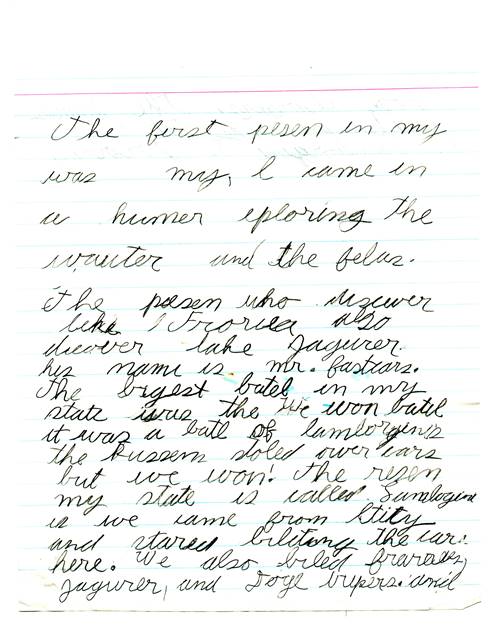 The first pesen in my
was my, I came in
a humer eploring the
wauter and the felas.
The pesen who discuver
lake Frorica also
dicover lake Jagurer.
his name is mr. fastcars.
The bigest batel in my
state was the We won batel
it was a batl of lamborgenis
the Russens stoled ower cars
but we won! The resen
my state is called
is we came from Itity
and stared bilding the car.
here. We also biled fraraies,
Jagurer, and Doge vipers. and